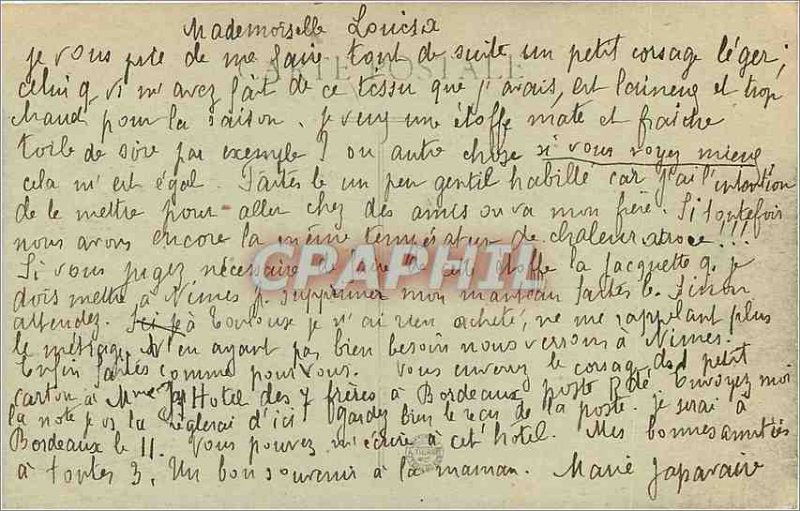 Mademoiselle Louisa
je vous prie de me faire tout de suite un petit corsage léger;
CARTE POSTALE
celui q. vs m'avez fait de ce tissu que j'avais, est laineux et trop
chaud pour la saison. je veux une étoffe mate et fraîche
toile de soie par exemple? ou autre chose si vous voyez mieux,
cela m'est égal. Faites le un peu gentil habillé car j'ai l'intention
de le mettre pour aller chez des amis où va mon frère. Si toutefois
nous avons encore la même température de chaleur atroce!!!
CPAPHIL
Si vous jugez nécessaire de faire de cette étoffe la jacquette q. je
dois mettre à Nîmes p. supprimer mon manteau faites le. Sinon
attendez. à Toulouse je n'ai rien acheté, ne me rappelant plus
le métrage. N'en ayant pas bien besoin nous verrons à Nîmes.
Enfin faites comme pour vous. Vous enverrez le corsage ds 1 petit
carton à Mme Hotel des 7 frères à Bordeaux poste Rte. Envoyez moi
la note je vs la règlerai d'ici gardez bien le reçu de la poste. je serai à
Bordeaux le 11. Vous pouvez m'écrire à cet hôtel. Mes bonnes amitiés
à toutes 3. Un bon souvenir à la maman. Marie